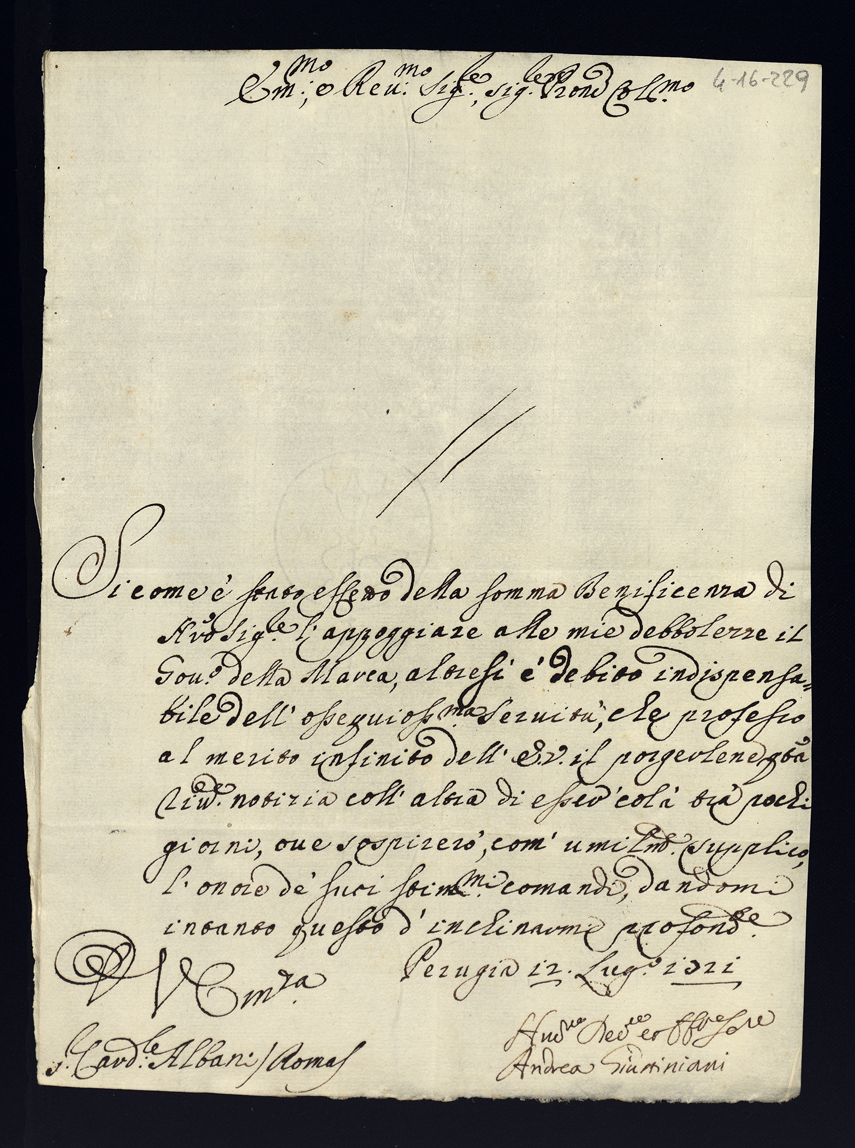 Em.mo, e Reu.mo Sig.re, Sig.re Pron Col.mo
4-16-229
Si come è stato effetto della somma Benificenza di
N'rō Sig.re l'appoggiare alle mie debbolezze il
Gou.o della Marca, altresì è debito indispensa=
bile dell' ossequios.ma Seruitù, che professo
al merito infinito dell' E.V. il porgerlene q'tā
riu.te notizia coll' altra di esser colà trà pochi
giorni, oue sospirerò, com' umilm.te supplico,
l'onore de' suoi stim.mi comandi, dandomi
intanto questo d' inchinarmi profond.te
V Em.za
Perugia 12. Lug.o 1721
S. Card.le Albani / Roma
Hu.mo Deu.mo et Obb.mo Ser.re
Andrea Giustiniani